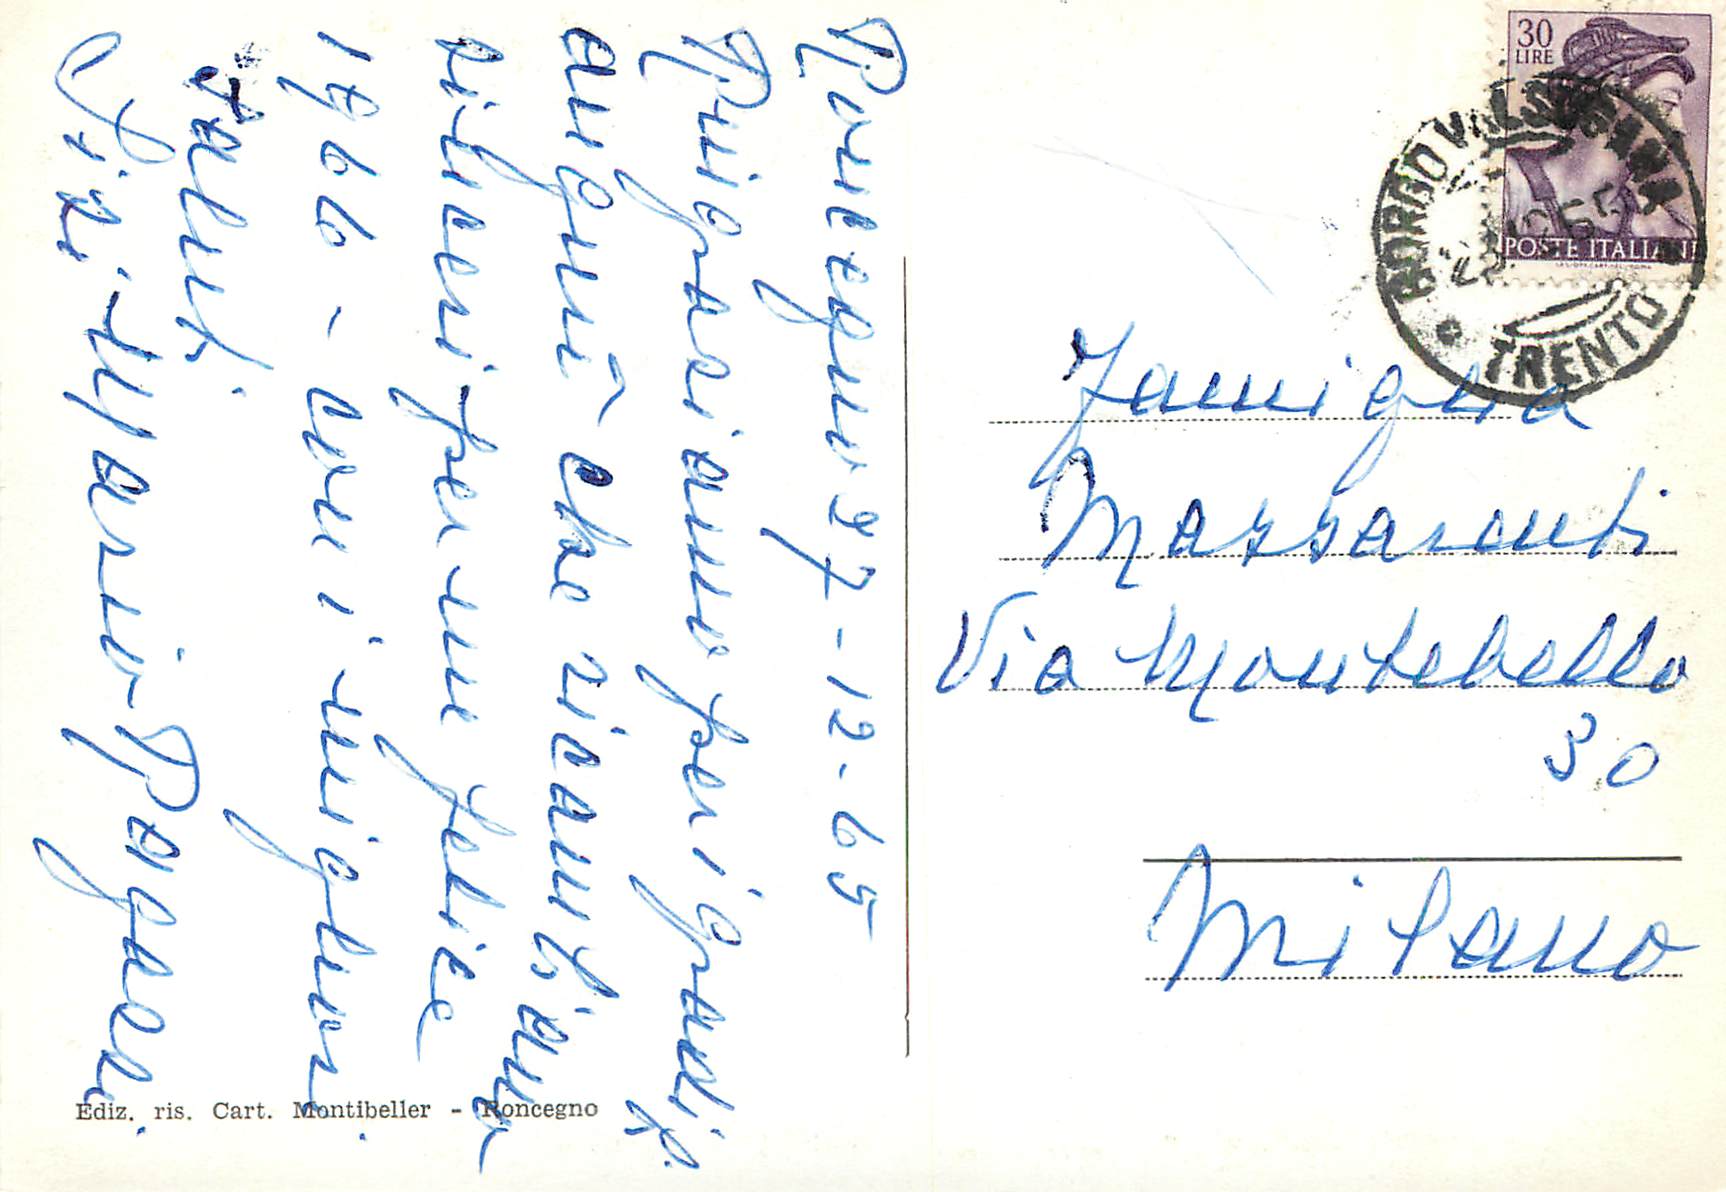 30
LIRE
POSTE ITALIANE
BORGO VALSUGANA
TRENTO
Roncegno 27-12-65
Ringraziamo per i graditi
auguri - che ricambiamo
sinceri per un felice
1966 - con i migliori
saluti
Mario
Famiglia
Massarenti
Via Montebello
30
Milano
Ediz. ris. Cart. Montibeller - Roncegno